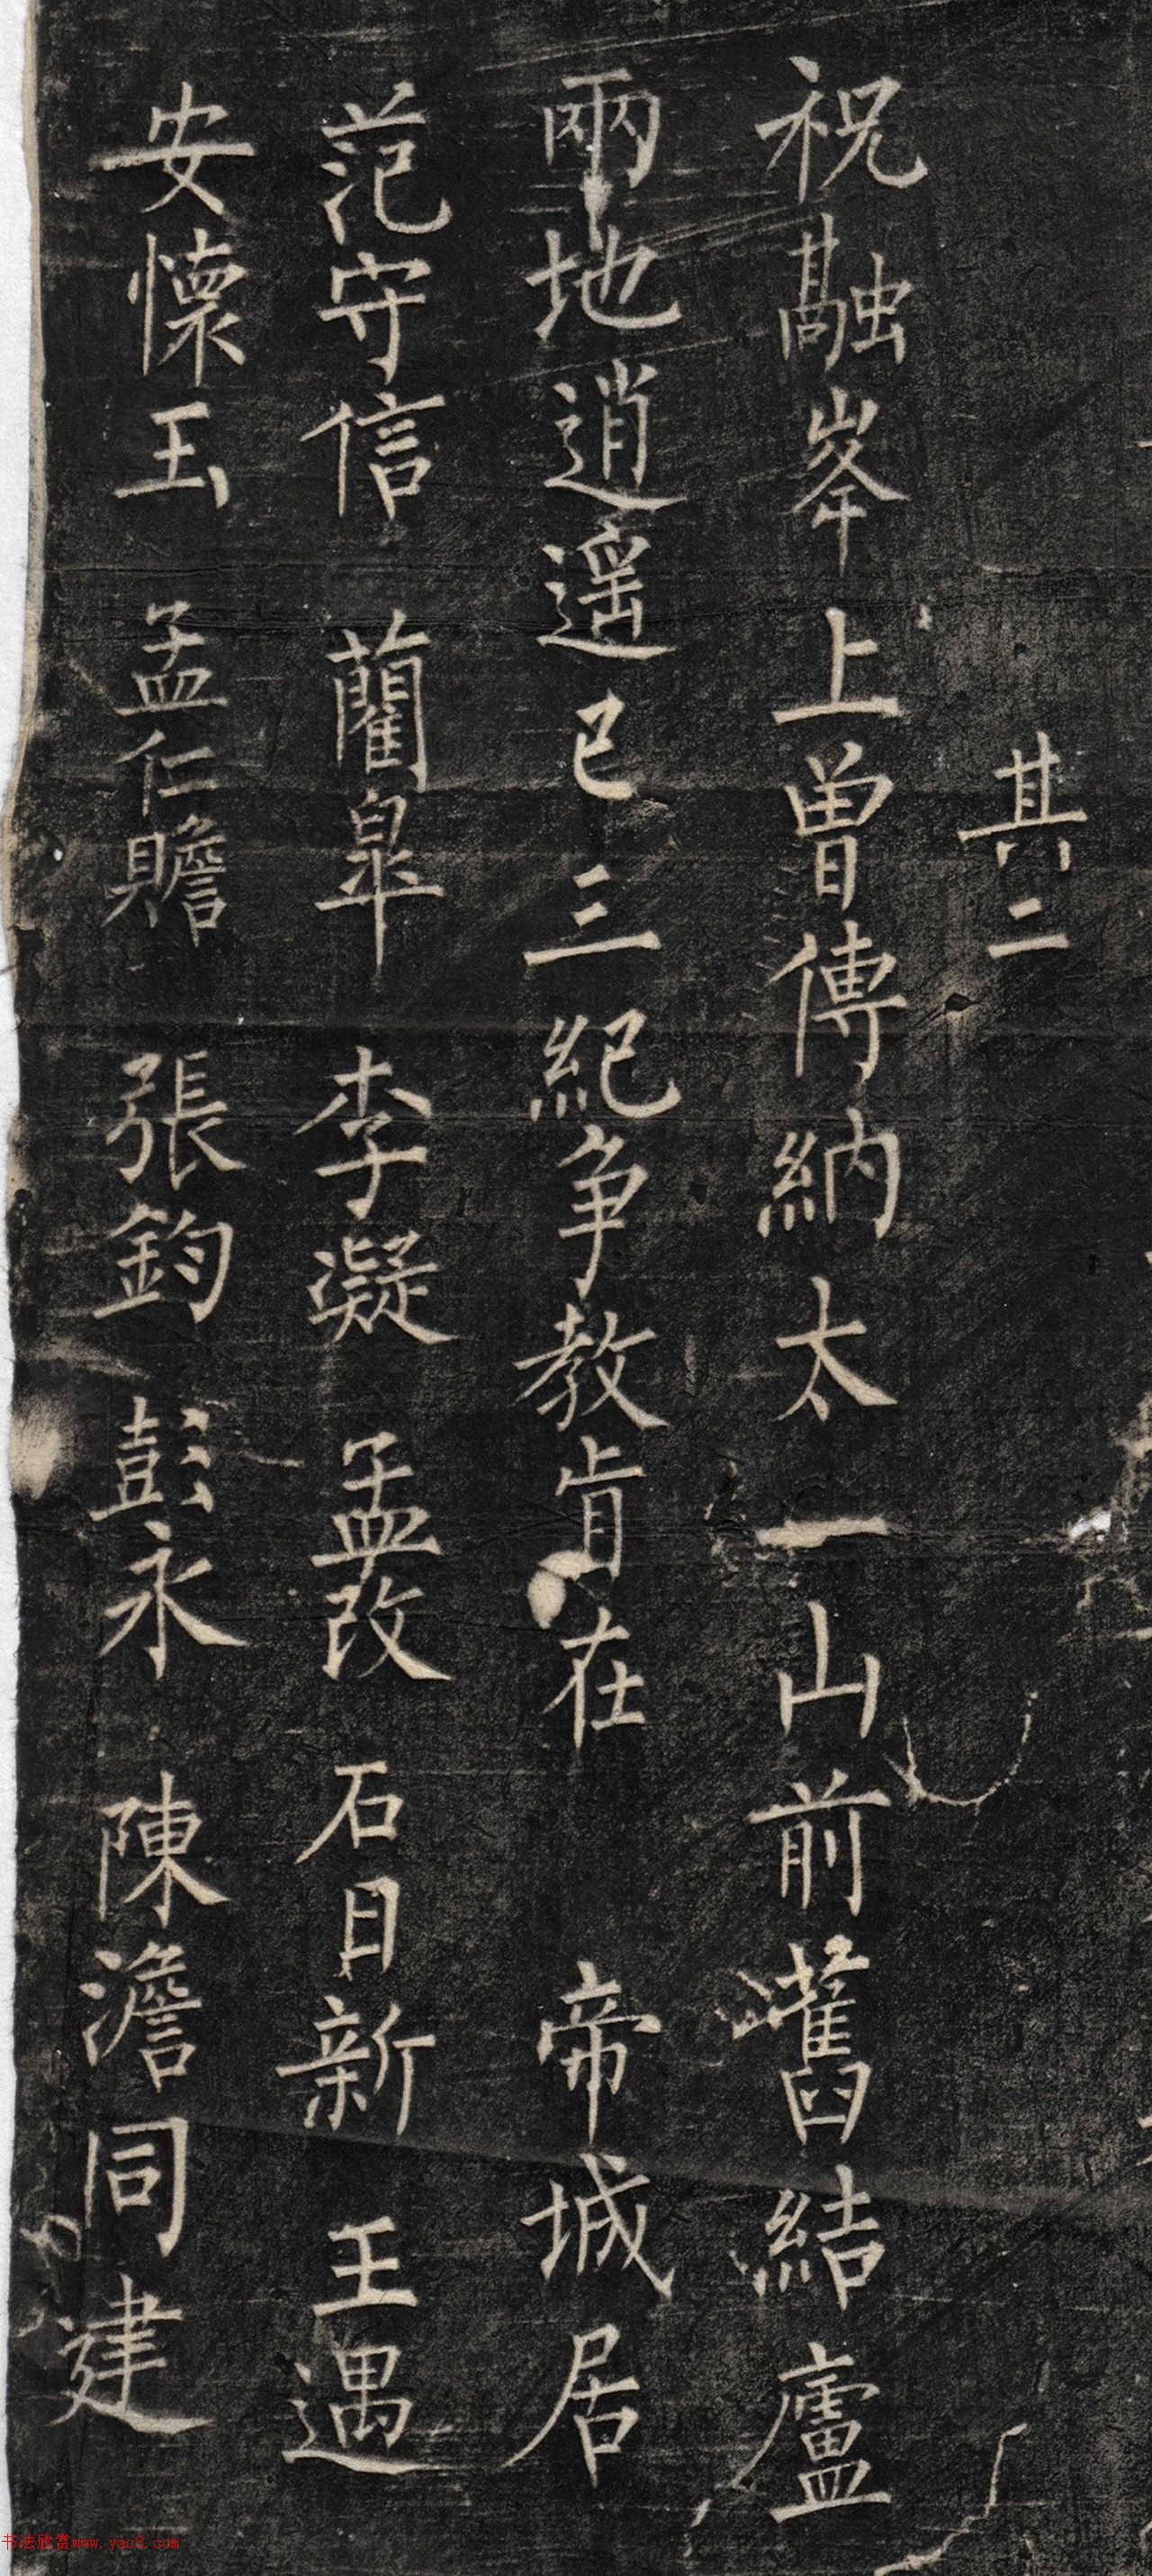 其二
祝融峯上曾傳納太一山前舊結廬
兩地逍遥已三紀争教肯在 帝城居
范守信 藺皐 李凝 孟改 石日新 王遇
安懷玉 孟仁贍 張鈞 彭永 陳澹同建
书法欣赏www.yac8.com